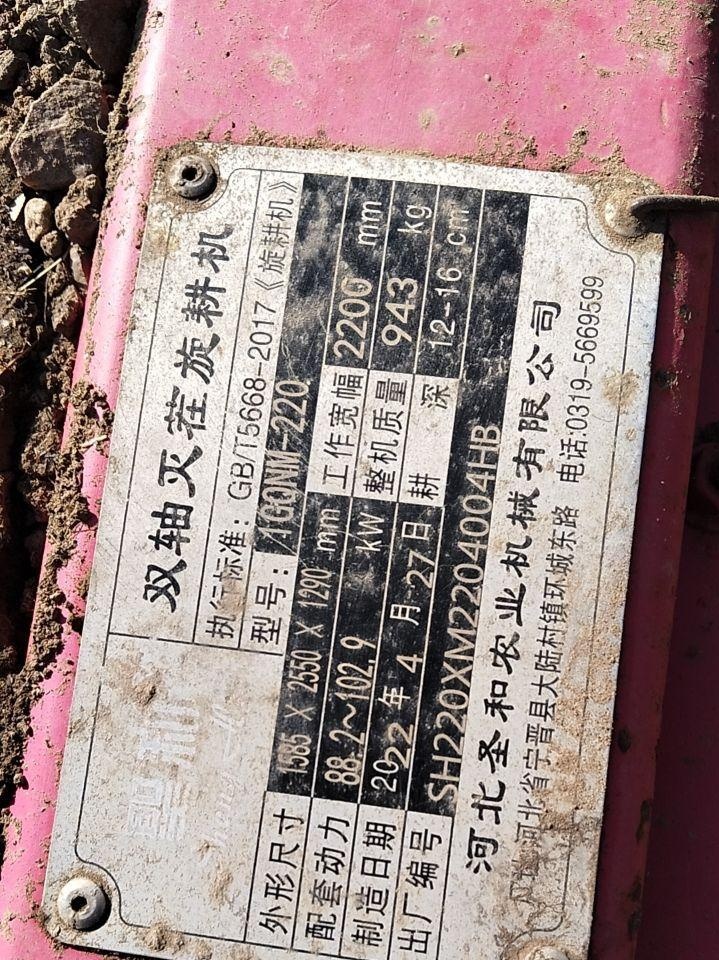 双轴灭茬旋耕机
聖和
执行标准：GB/T5668-2017《旋耕机》
型号：1GQNM-220
外形尺寸 1585 X 2550 X 1290 mm 工作宽幅 2200 mm
配套动力 88.2～102.9 kW 整机质量 943 kg
制造日期 2022 年 4 月 27 日 耕 深 12-16 cm
出厂编号 SH220XM2204004HB
河北圣和农业机械有限公司
河北省宁晋县大陆村镇环城东路 电话:0319-5669599